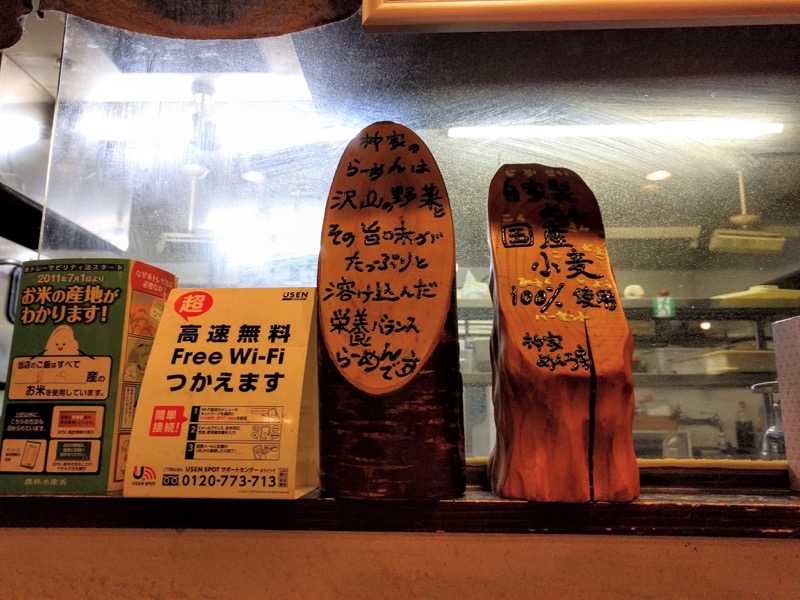 米トレーサビリティ法スタート
2011年7月1日より
お米の産地が
わかります!
当店のご飯はすべて
産の
お米を使用しています。
農林水産省
超
USEN
高速無料
Free Wi-Fi
つかえます
簡単
接続!
1
2
3
USEN SPOT
USEN SPOT サポートセンター
0120-773-713
神家の
らーめんは
沢山の野菜と
その旨味が
たっぷりと
溶け込んだ
栄養バランス
らーめんです
じかせい
自家製
めん
こくさん
国産
こむぎ
小麦
100% 使用
パーセント
神家
めん工房